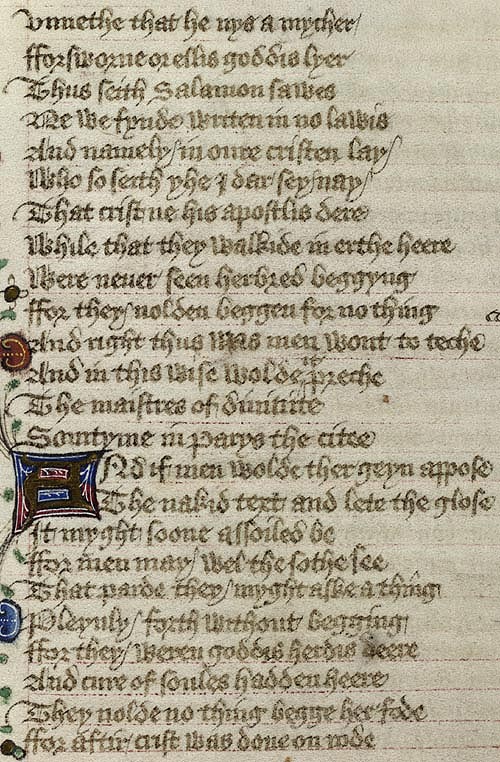 Vnnethe that he nys a mycher
fforsworne or ellis goddis lyer
Thus seith Salamon sawes
Ne we fynde writen in no lawis
And namely / in oure cristen lay /
Who so seith yhe I dar sey / nay /
That crist ne his apostlis dere
While that they walkide in erthe heere
Were neuer seen herbred beggyng
ffor they / nolden beggen for no thing
And right thus was men wont to teche
And in this wise wolde it preche
The maistres of diuinite
Somtyme in Parys the citee
And if men wolde ther geyn appose
The nakid text and lete the glose
It myght soone assoiled be
ffor men may / wel the sothe see
That parde they / myght aske a thing
Pleynly / forth without begging
ffor they / weren goddis herdis deere
And cure of soules hadden heere
They nolde no thing begge her fode
ffor aftir / crist was done on rode